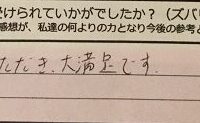 受けられていかがでしたか？（ズバリ
感想が、私達の何よりの力となり今後の参考と
ただき、大満足です。